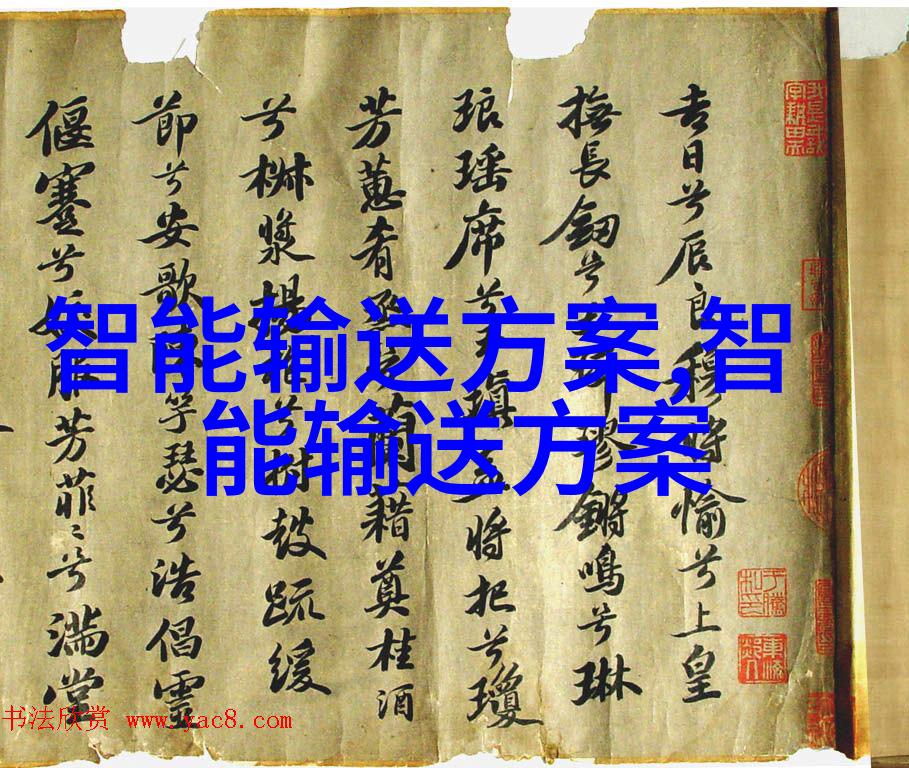 吉日兮辰良穆將愉兮上皇
撫長劒兮珥璆鏘鳴兮琳
琅瑶席兮玉瑱盍將把兮瓊
芳蕙肴烝之蘭藉奠桂酒
兮椒漿揚枹兮拊鼓疏緩
節兮安歌陳竽瑟兮浩倡靈
偃蹇兮姣服芳菲〻兮滿堂
智能输送方案,智
能输送方案
书法欣赏 www.yac8.com